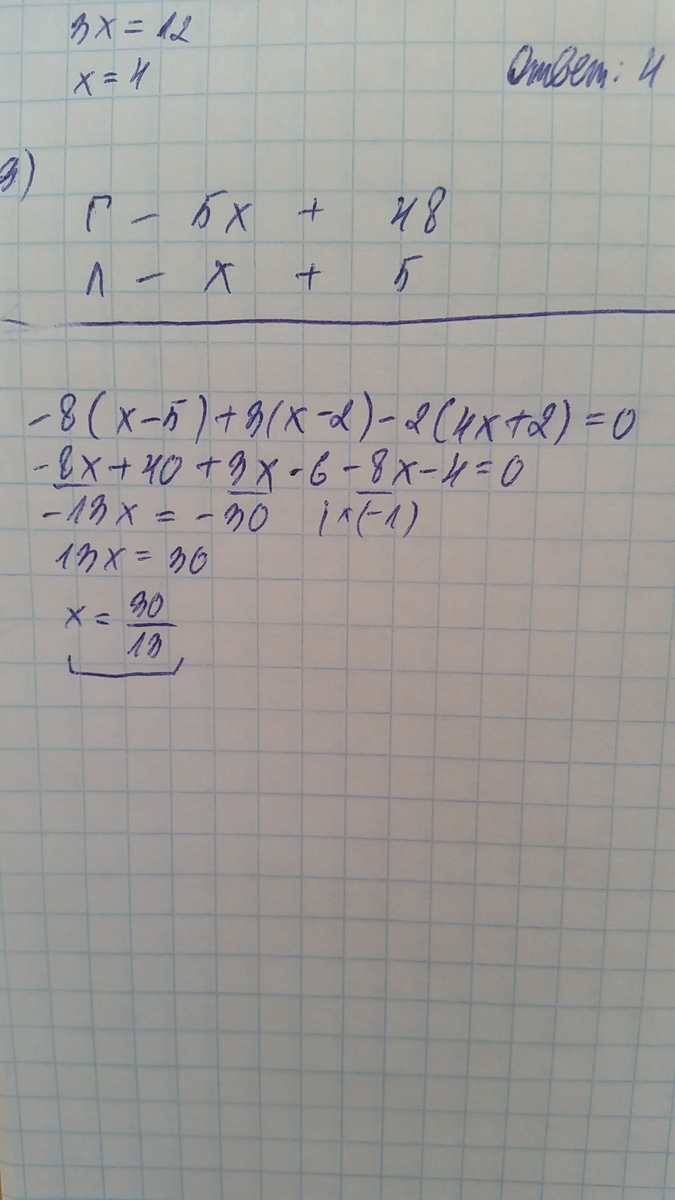 3x = 12
x = 4
Ответ: 4
3)
Г - 5x + 48
Л - x + 5
-8(x-5)+3(x-2)-2(4x+2)=0
-8x+40+3x-6-8x-4=0
-13x = -30 |×(-1)
13x = 30
x = 30/13